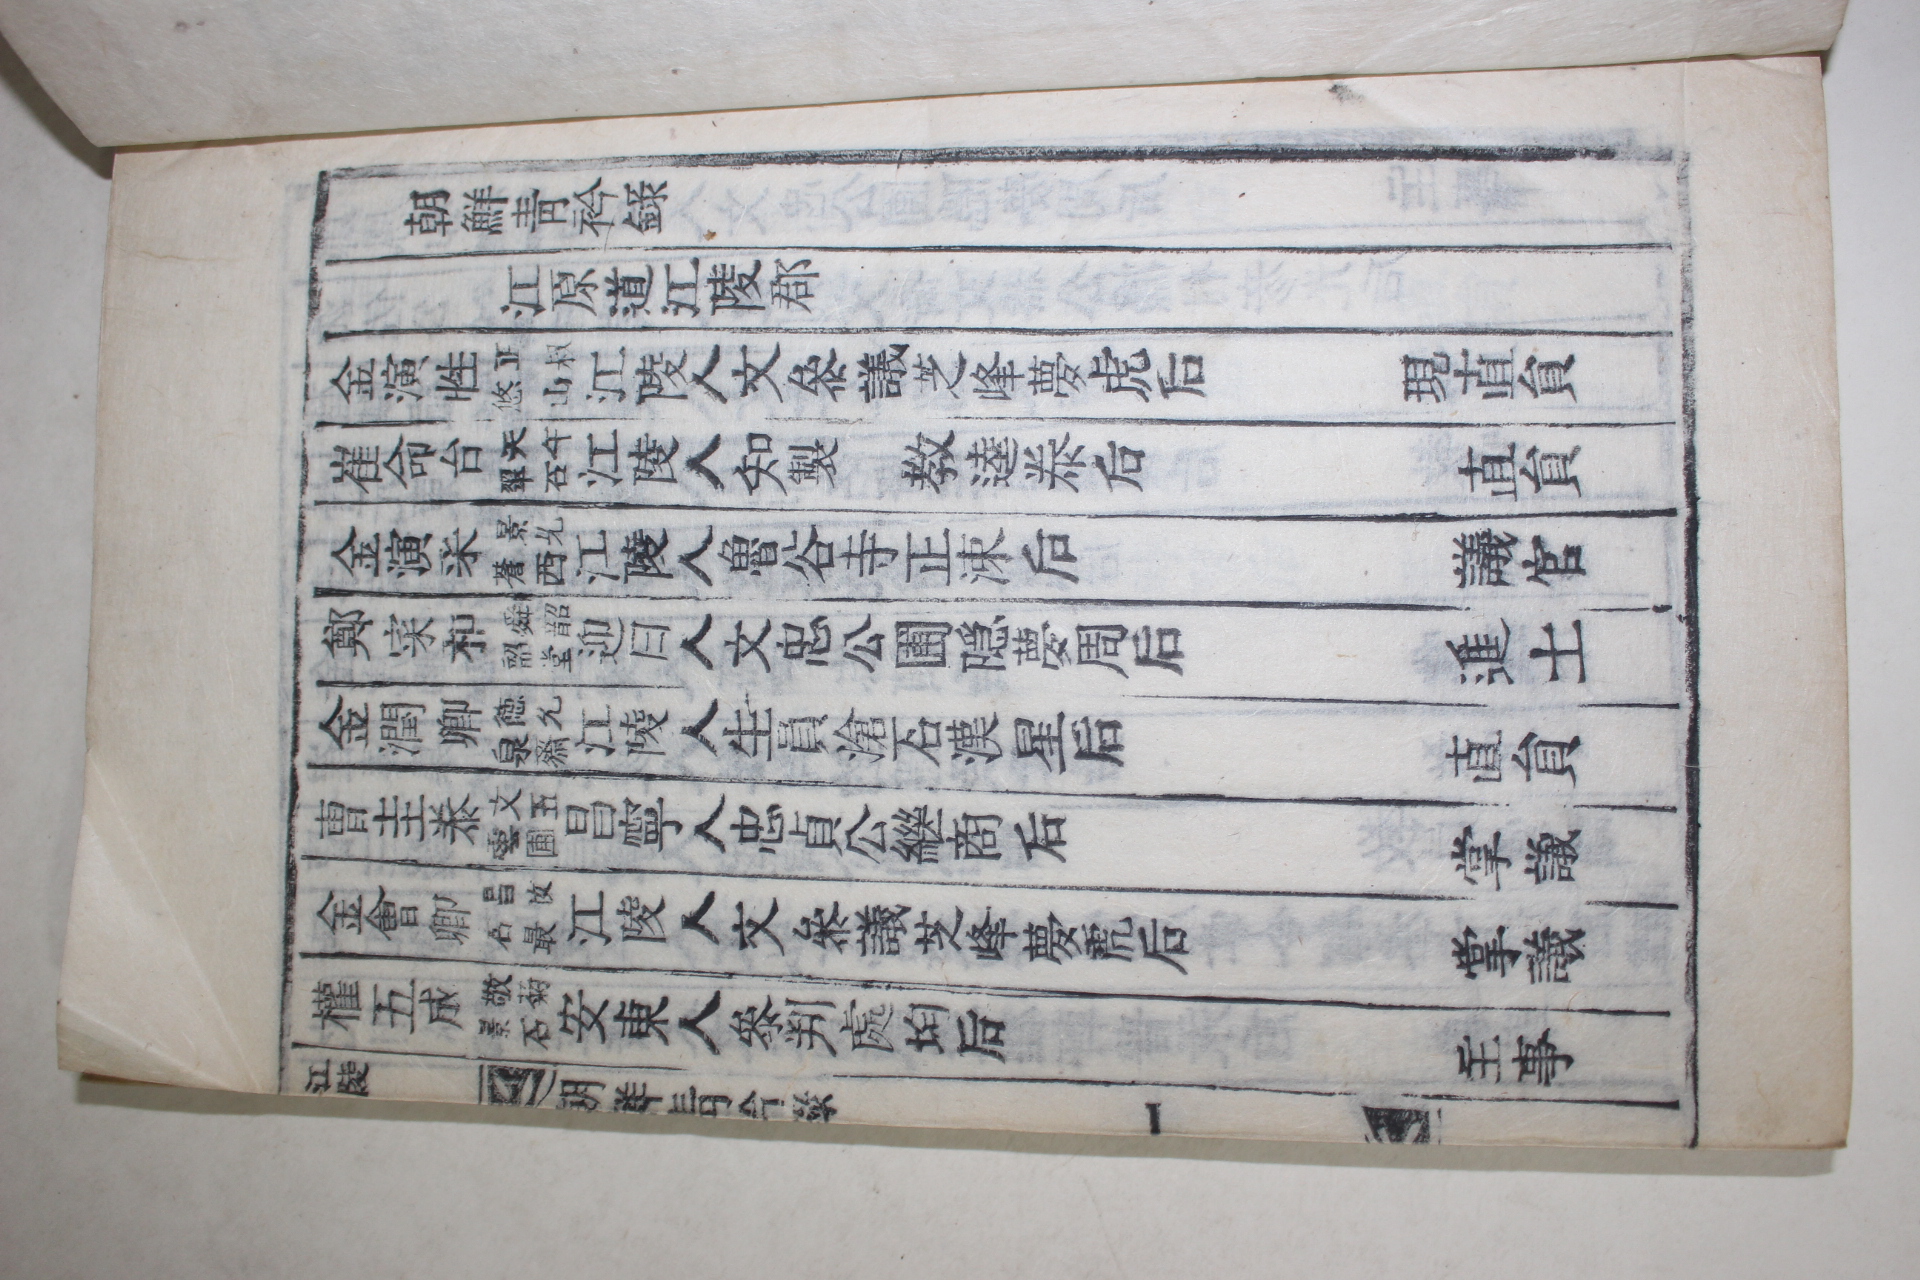 朝鮮靑衿錄
江原道江陵郡
金演性 正叔 悠山 江陵人文叅議芝峰夢虎后 現直員
崔命台 天午 翠石 江陵人知製 敎逵泰后 直員
金演采 景允 西 江陵人魯谷寺正涷后 議官
鄭寀和 舜韶 韶堂 迎日人文忠公圃隱夢周后 進士
金潤卿 德允 泉 江陵人生員滄石漢星后 直員
曺圭泰 文五 雲圃 昌寧人忠貞公繼商后 掌議
金會卿 昌汝 名最 江陵人文叅議芝峰夢虎后 掌議
權五成 敬菊 景石 安東人叅判處均后 主事
江陵 朝鮮靑衿錄 一